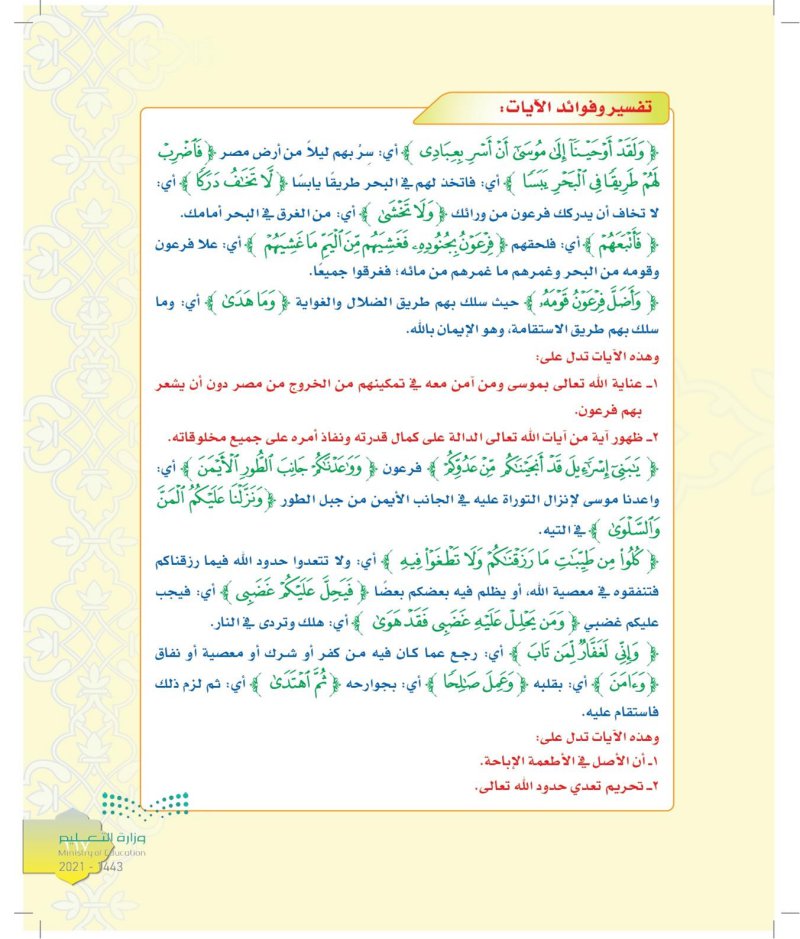 تفسير وفوائد الآيات:
﴿ وَلَقَدْ أَوْحَيْنَآ إِلَىٰ مُوسَىٰٓ أَنْ أَسْرِ بِعِبَادِى ﴾ أي: سِرْ بهم ليلاً من أرض مصر ﴿ فَٱضْرِبْ
لَهُمْ طَرِيقًا فِى ٱلْبَحْرِ يَبَسًا ﴾ أي: فاتخذ لهم في البحر طريقًا يابسًا ﴿ لَّا تَخَـٰفُ دَرَكًا ﴾ أي:
لا تخاف أن يدركك فرعون من ورائك ﴿ وَلَا تَخْشَىٰ ﴾ أي: من الغرق في البحر أمامك.
﴿ فَأَتْبَعَهُمْ ﴾ أي: فلحقهم ﴿ فِرْعَوْنُ بِجُنُودِهِۦ فَغَشِيَهُم مِّنَ ٱلْيَمِّ مَا غَشِيَهُمْ ﴾ أي: علا فرعون
وقومه من البحر وغمرهم ما غمرهم من مائه؛ فغرقوا جميعًا.
﴿ وَأَضَلَّ فِرْعَوْنُ قَوْمَهُۥ ﴾ حيث سلك بهم طريق الضلال والغواية ﴿ وَمَا هَدَىٰ ﴾ أي: وما
سلك بهم طريق الاستقامة، وهو الإيمان بالله.
وهذه الآيات تدل على:
١ـ عناية الله تعالى بموسى ومن آمن معه في تمكينهم من الخروج من مصر دون أن يشعر
بهم فرعون.
٢ـ ظهور آية من آيات الله تعالى الدالة على كمال قدرته ونفاذ أمره على جميع مخلوقاته.
﴿ يَـٰبَنِىٓ إِسْرَٰٓءِيلَ قَدْ أَنجَيْنَـٰكُم مِّنْ عَدُوِّكُمْ ﴾ فرعون ﴿ وَوَٰعَدْنَـٰكُمْ جَانِبَ ٱلطُّورِ ٱلْأَيْمَنَ ﴾ أي:
واعدنا موسى لإنزال التوراة عليه في الجانب الأيمن من جبل الطور ﴿ وَنَزَّلْنَا عَلَيْكُمُ ٱلْمَنَّ
وَٱلسَّلْوَىٰ ﴾ في التيه.
﴿ كُلُوا۟ مِن طَيِّبَـٰتِ مَا رَزَقْنَـٰكُمْ وَلَا تَطْغَوْا۟ فِيهِ ﴾ أي: ولا تتعدوا حدود الله فيما رزقناكم
فتنفقوه في معصية الله، أو يظلم فيه بعضكم بعضًا ﴿ فَيَحِلَّ عَلَيْكُمْ غَضَبِى ﴾ أي: فيجب
عليكم غضبي ﴿ وَمَن يَحْلِلْ عَلَيْهِ غَضَبِى فَقَدْ هَوَىٰ ﴾ أي: هلك وتردى في النار.
﴿ وَإِنِّى لَغَفَّارٌ لِّمَن تَابَ ﴾ أي: رجع عما كان فيه من كفر أو شرك أو معصية أو نفاق
﴿ وَءَامَنَ ﴾ أي: بقلبه ﴿ وَعَمِلَ صَـٰلِحًا ﴾ أي: بجوارحه ﴿ ثُمَّ ٱهْتَدَىٰ ﴾ أي: ثم لزم ذلك
فاستقام عليه.
وهذه الآيات تدل على:
١ـ أن الأصل في الأطعمة الإباحة.
٢ـ تحريم تعدي حدود الله تعالى.
وزارة التعليم
Ministry of Education
2021 - 1443